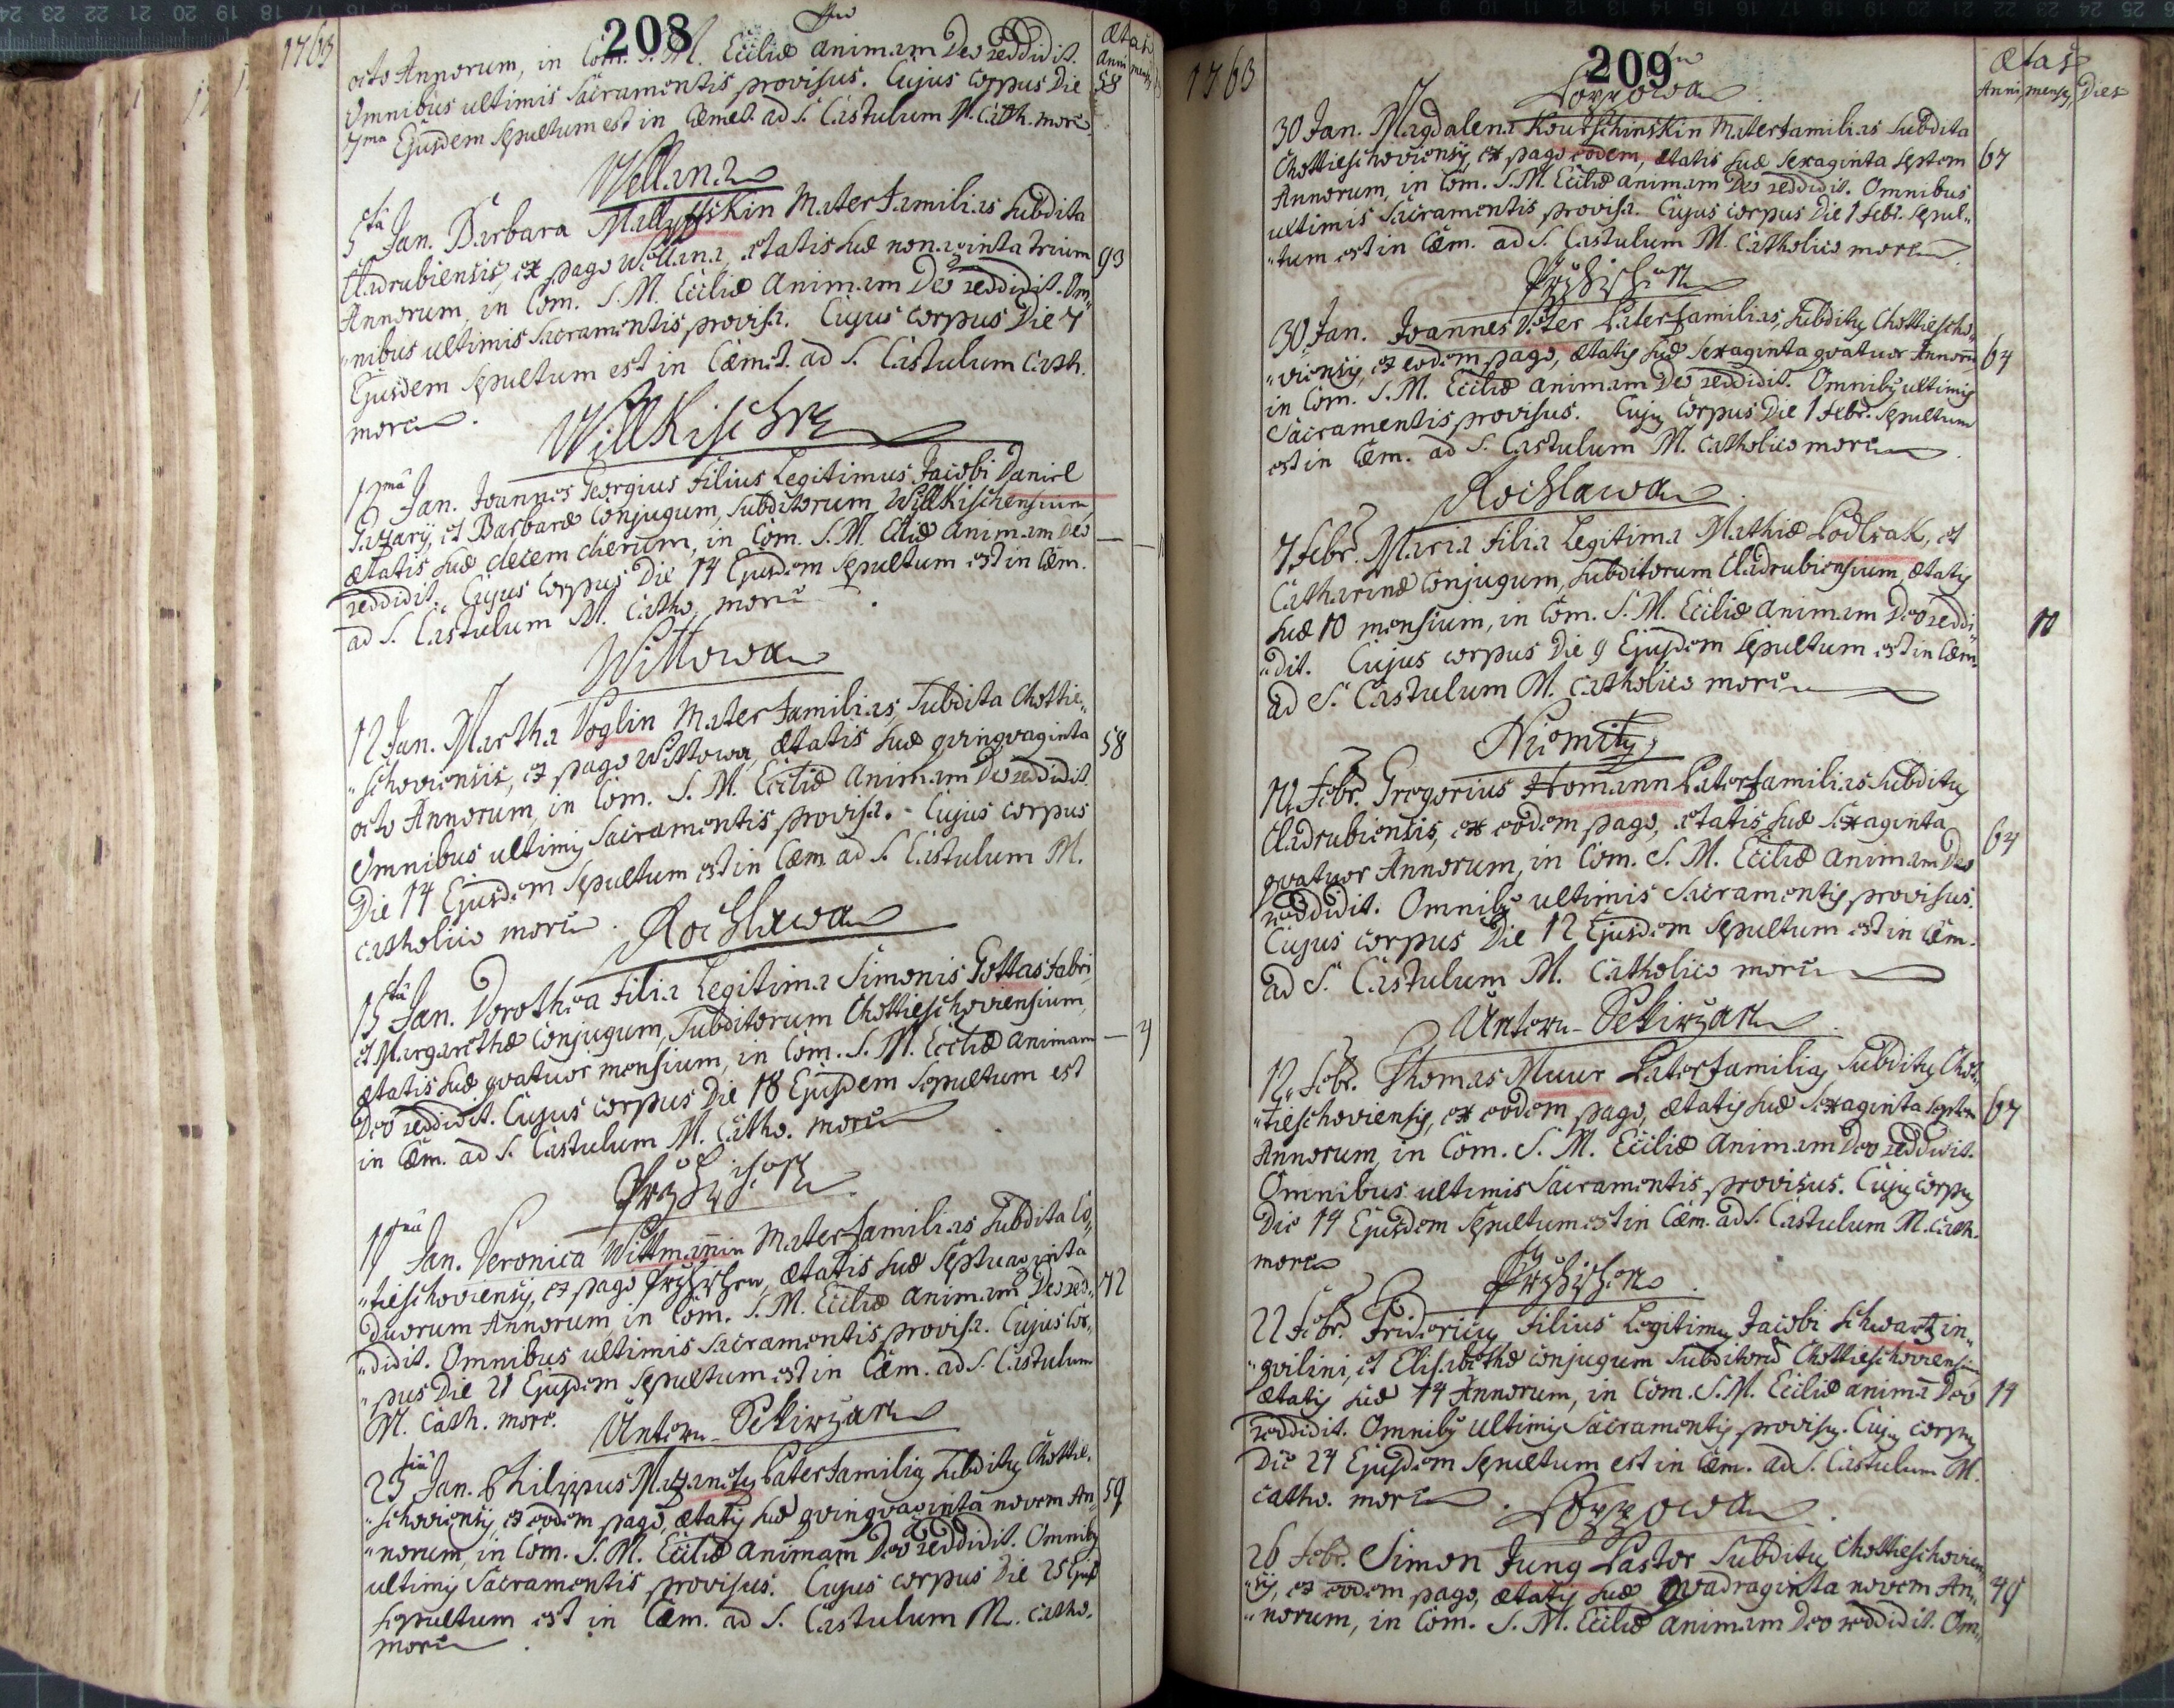 208
1763
Ætas
Anni menses
octo Annorum, in Com. S. M. Eccliæ animam Deo reddidit.
Omnibus ultimis Sacramentis provisus. Cujus corpus Die 58
7ma Ejusdem sepultum est in Cæmet. ad S. Castulum M. Cath. more
Wellana
5ta Jan. Barbara Mallyffskin Mater familias Subdita
Cladrubiensis, ex pago Wellana, ætatis suæ nonaginta trium 93
Annorum, in Com. S. M. Eccliæ animam Deo reddidit. Om„
„nibus ultimis Sacramentis provisa. Cujus corpus Die 7
Ejusdem sepultum est in Cæmet. ad S. Castulum Cath.
more.
Willkischen
12ma Jan. Joannes Georgius filius Legitimus Jacobi Daniel
et Barbaræ Conjugum, Subditorum Willkischensium
ætatis suæ decem dierum, in Com. S. M. Eccliæ animam Deo
reddidit. Cujus corpus Die 14 Ejusdem sepultum est in Cæm.
ad S. Castulum M. Catho. more
Wittowa
12 Jan. Martha Voglin Mater familias, Subdita Chottie„
„schoviensis, ex pago Wittowa, ætatis suæ qvinqvaginta 58
octo Annorum, in Com. S. M. Eccliæ animam Deo reddidit.
Omnibus ultimis Sacramentis provisa. Cujus corpus
Die 14 Ejusdem sepultum est in Cæm. ad S. Castulum M.
catholico more.
Rochlawa
15ta Jan. Dorothea filia Legitima Simonis Gottas fabri,
et Margarethæ Conjugum, Subditorum Chottieschoviensium,
ætatis suæ qvatuor mensium, in Com. S. M. Eccliæ animam — 4
Deo reddidit. Cujus corpus Die 18 Ejusdem sepultum est
in Cæm. ad S. Castulum M. Catho. more
Przchischen
Jan. Veronica Wittmannin Mater familias Subdita Co„
„tieschoviensis, ex pago Przchischen, ætatis suæ septuaginta
Duorum Annorum in Com. S. M. Eccliæ animam Deo red„ 72
„didit. Omnibus ultimis Sacramentis provisa. Cujus cor„
„pus Die 21 Ejusdem sepultum est in Cæm. ad S. Castulum
M. Cath. more.
Untern-Sekirzan
23tia Jan. Philippus Paterfamilias Subditus Chottie„
„schoviensis, ex eodem pago, ætatis suæ qvinqvaginta novem An„ 59
„norum, in Com. S. M. Eccliæ animam Deo reddidit. Omnibus
ultimis Sacramentis provisus. Cujus corpus Die 25 Ejusd
sepultum est in Cæm. ad S. Castulum M. Catho.
more.
209
1763
Ætas
Anni, menses, Dies
Lozzowa
30 Jan. Magdalena Kourschinskin Mater familias Subdita
Chottieschoviensis, ex pago eodem, ætatis suæ sexaginta septem 67
Annorum, in Com. S. M. Eccliæ animam Deo reddidit. Omnibus
ultimis Sacramentis provisa. Cujus corpus Die 1 Febr. sepul„
„tum est in Cæm. ad S. Castulum M. Catholico more.
Przchischen
30 Jan. Joannes Peter Paterfamilias, Subditus Chottiescho„
„viensis, ex eodem pago, ætatis suæ sexaginta qvatuor Annorum 64
in Com. S. M. Eccliæ animam Deo reddidit. Omnibus ultimis
Sacramentis provisus. Cujus corpus Die 1 Febr. sepultum
est in Cæm. ad S. Castulum M. Catholico more.
Rochlawa
7 Febr. Maria filia Legitima Mathiæ Podlrak, et
Catharinæ Conjugum, Subditorum Cladrubiensium, ætatis
suæ 10 mensium, in Com. S. M. Eccliæ animam Deo reddi„ 10
„dit. Cujus corpus Die 9 Ejusdem sepultum est in Cæm.
ad S. Castulum M. Catholico more
Niemitz
Febr. Gregorius Homann Paterfamilias Subditus
Cladrubiensis, ex eodem pago, ætatis suæ sexaginta 64
qvatuor Annorum, in Com. S. M. Eccliæ animam Deo
reddidit. Omnibus ultimis Sacramentis provisus.
Cujus corpus Die 12 Ejusdem sepultum est in Cæm.
ad S. Castulum M. Catholico more
Untern-Sekirzan
12 Febr. Thomas Muur Paterfamilias Subditus Chot„
„tieschoviensis, ex eodem pago, ætatis suæ sexaginta septem 67
Annorum, in Com. S. M. Eccliæ animam Deo reddidit.
Omnibus ultimis Sacramentis provisus. Cujus corpus
Die 14 Ejusdem sepultum est in Cæm. ad S. Castulum M. Cath.
more
Przchischen
22 Febr. Fridericus filius Legitimus Jacobi Schwartz in„
„qvilini, et Elisabethæ conjugum Subditorum Chottieschoviensium
ætatis suæ 14 Annorum, in Com. S. M. Eccliæ animam Deo 14
reddidit. Omnibus ultimis Sacramentis provisus. Cujus corpus
Die 24 Ejusdem sepultum est in Cæm. ad S. Castulum M.
Catho. more.
Lozzowa
26 Febr. Simon Jung Pastor Subditus Chottieschovien„
„sis, ex eodem pago, ætatis suæ qvadraginta novem An„ 49
„norum, in Com. S. M. Eccliæ animam Deo reddidit. Om„